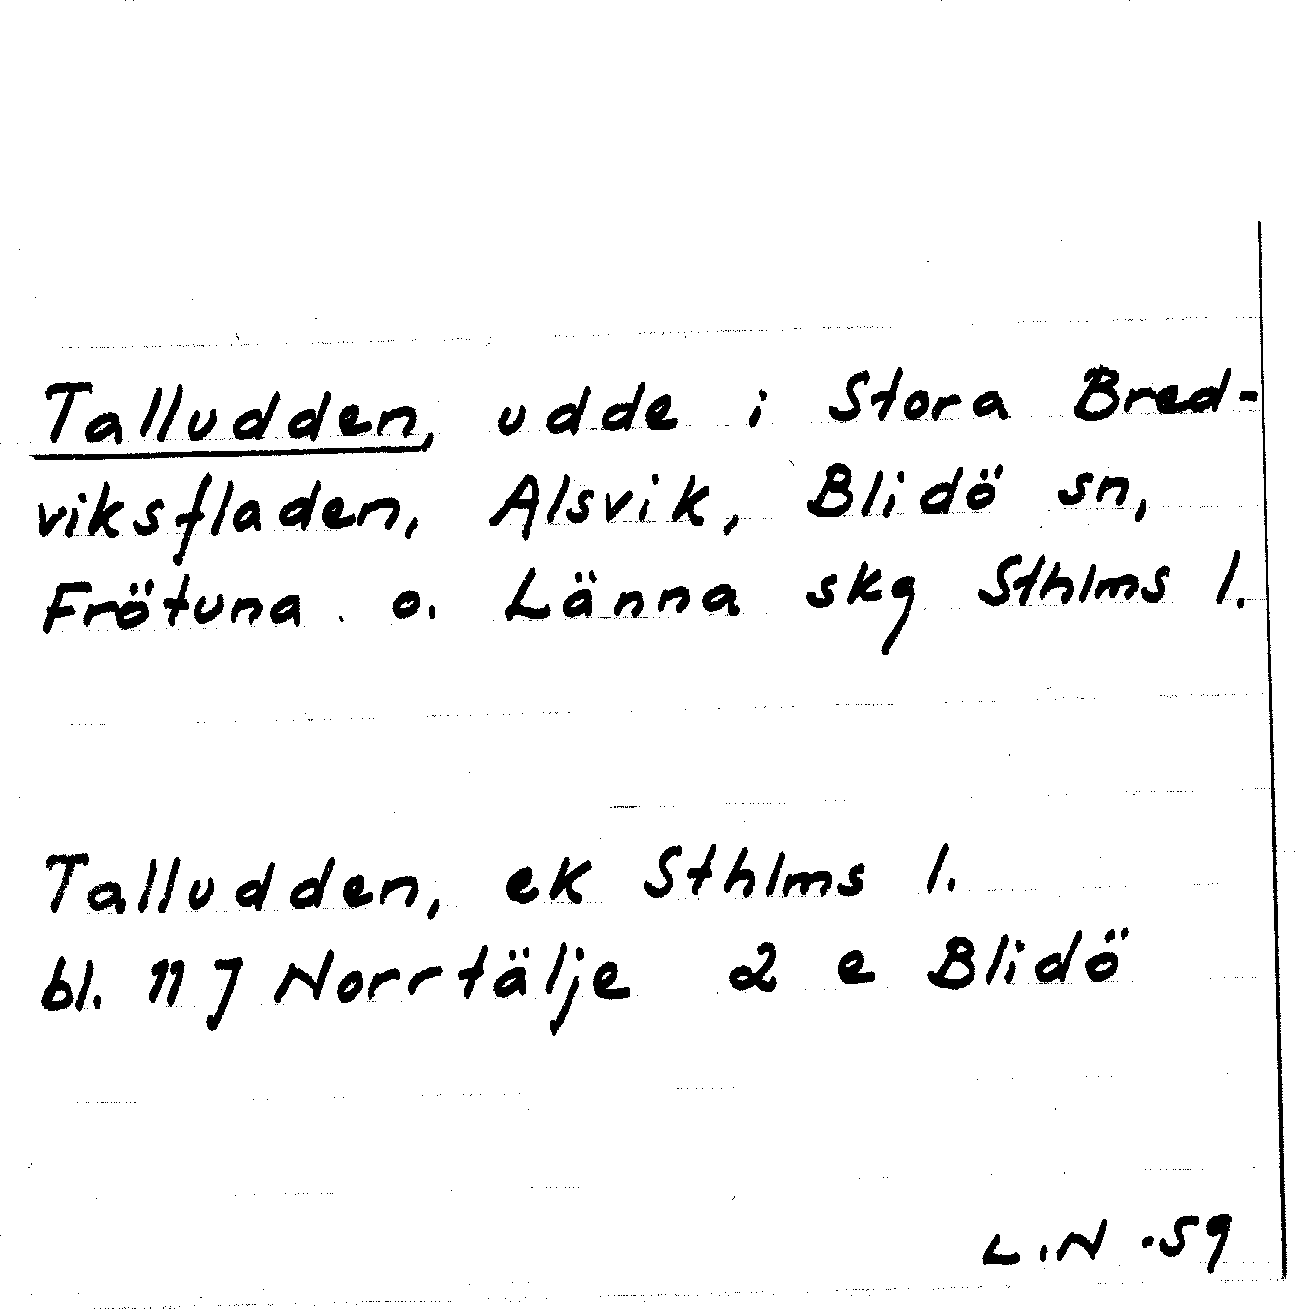 Talludden, udde i Stora Bred-
viksfladen, Alsvik, Blidö sn,
Frötuna o. Länna skg Sthlms l.
Talludden, ek Sthlms l.
bl. 11 J Norrtälje 2 e Blidö
L.N .59